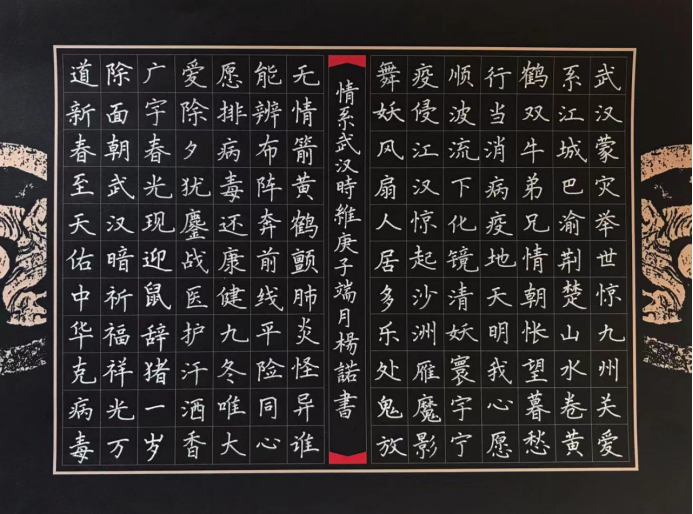 武汉蒙灾举世惊九州关爱
系江城巴渝荆楚山水卷黄
鹤双牛弟兄情朝怅望暮愁
行当消病疫地天明我心愿
顺波流下化镜清妖寰宇宁
疫侵江汉惊起沙洲雁魔影
舞妖风扇人居多乐处鬼放
情系武汉時維庚子端月楊諾書
无情箭黄鹤颤肺炎怪异谁
能辨布阵奔前线平险同心
愿排病毒还康健九冬唯大
爱除夕犹鏖战医护汗洒香
广宇春光现迎鼠辞猪一岁
除面朝武汉暗祈福祥光万
道新春至天佑中华克病毒